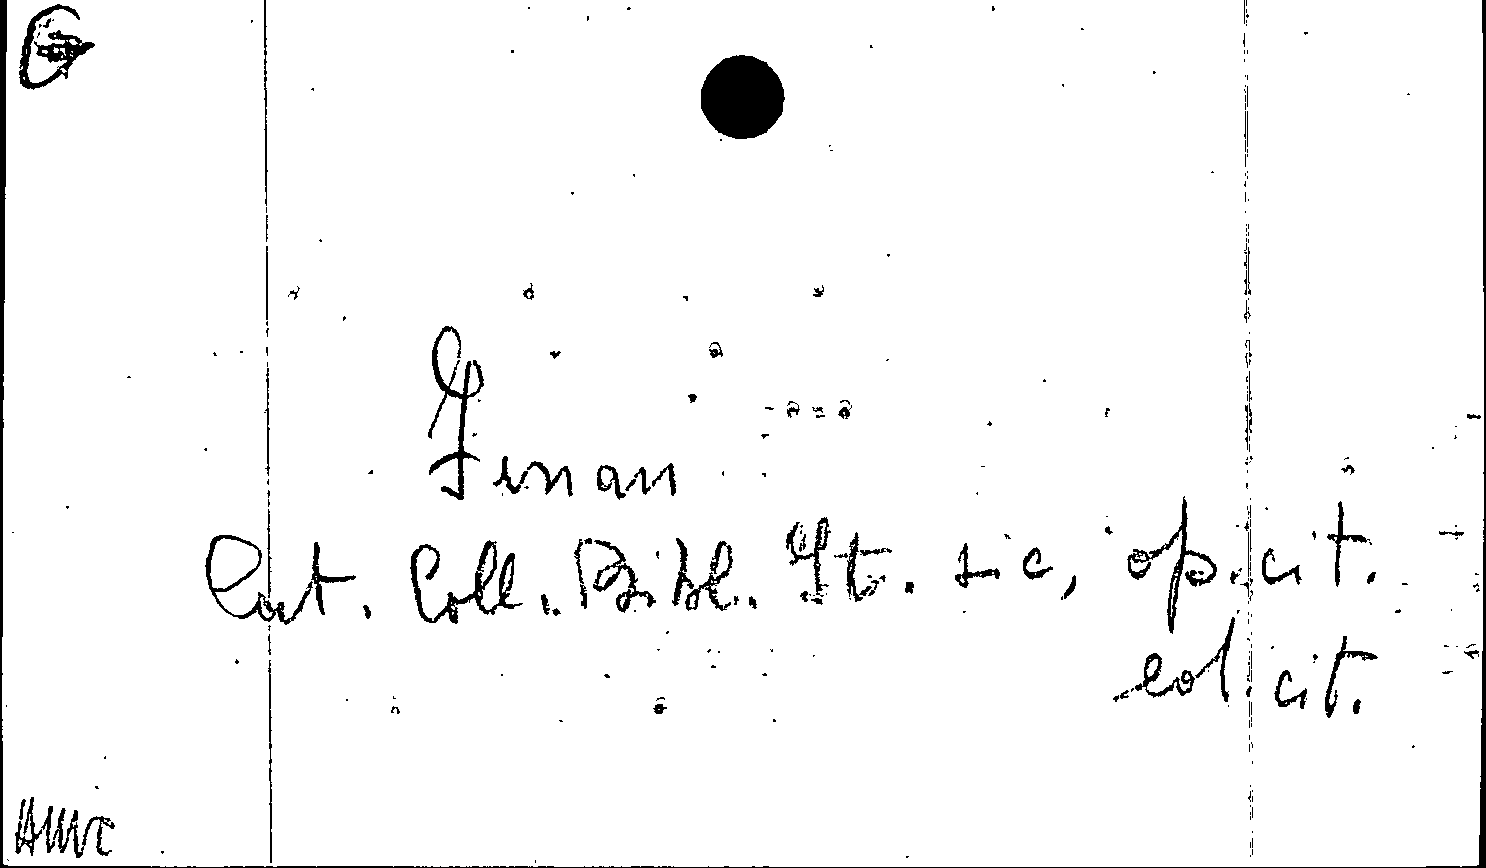 G
Finan
Cat. Coll. Bibl. It. sic, op. cit.
col. cit.